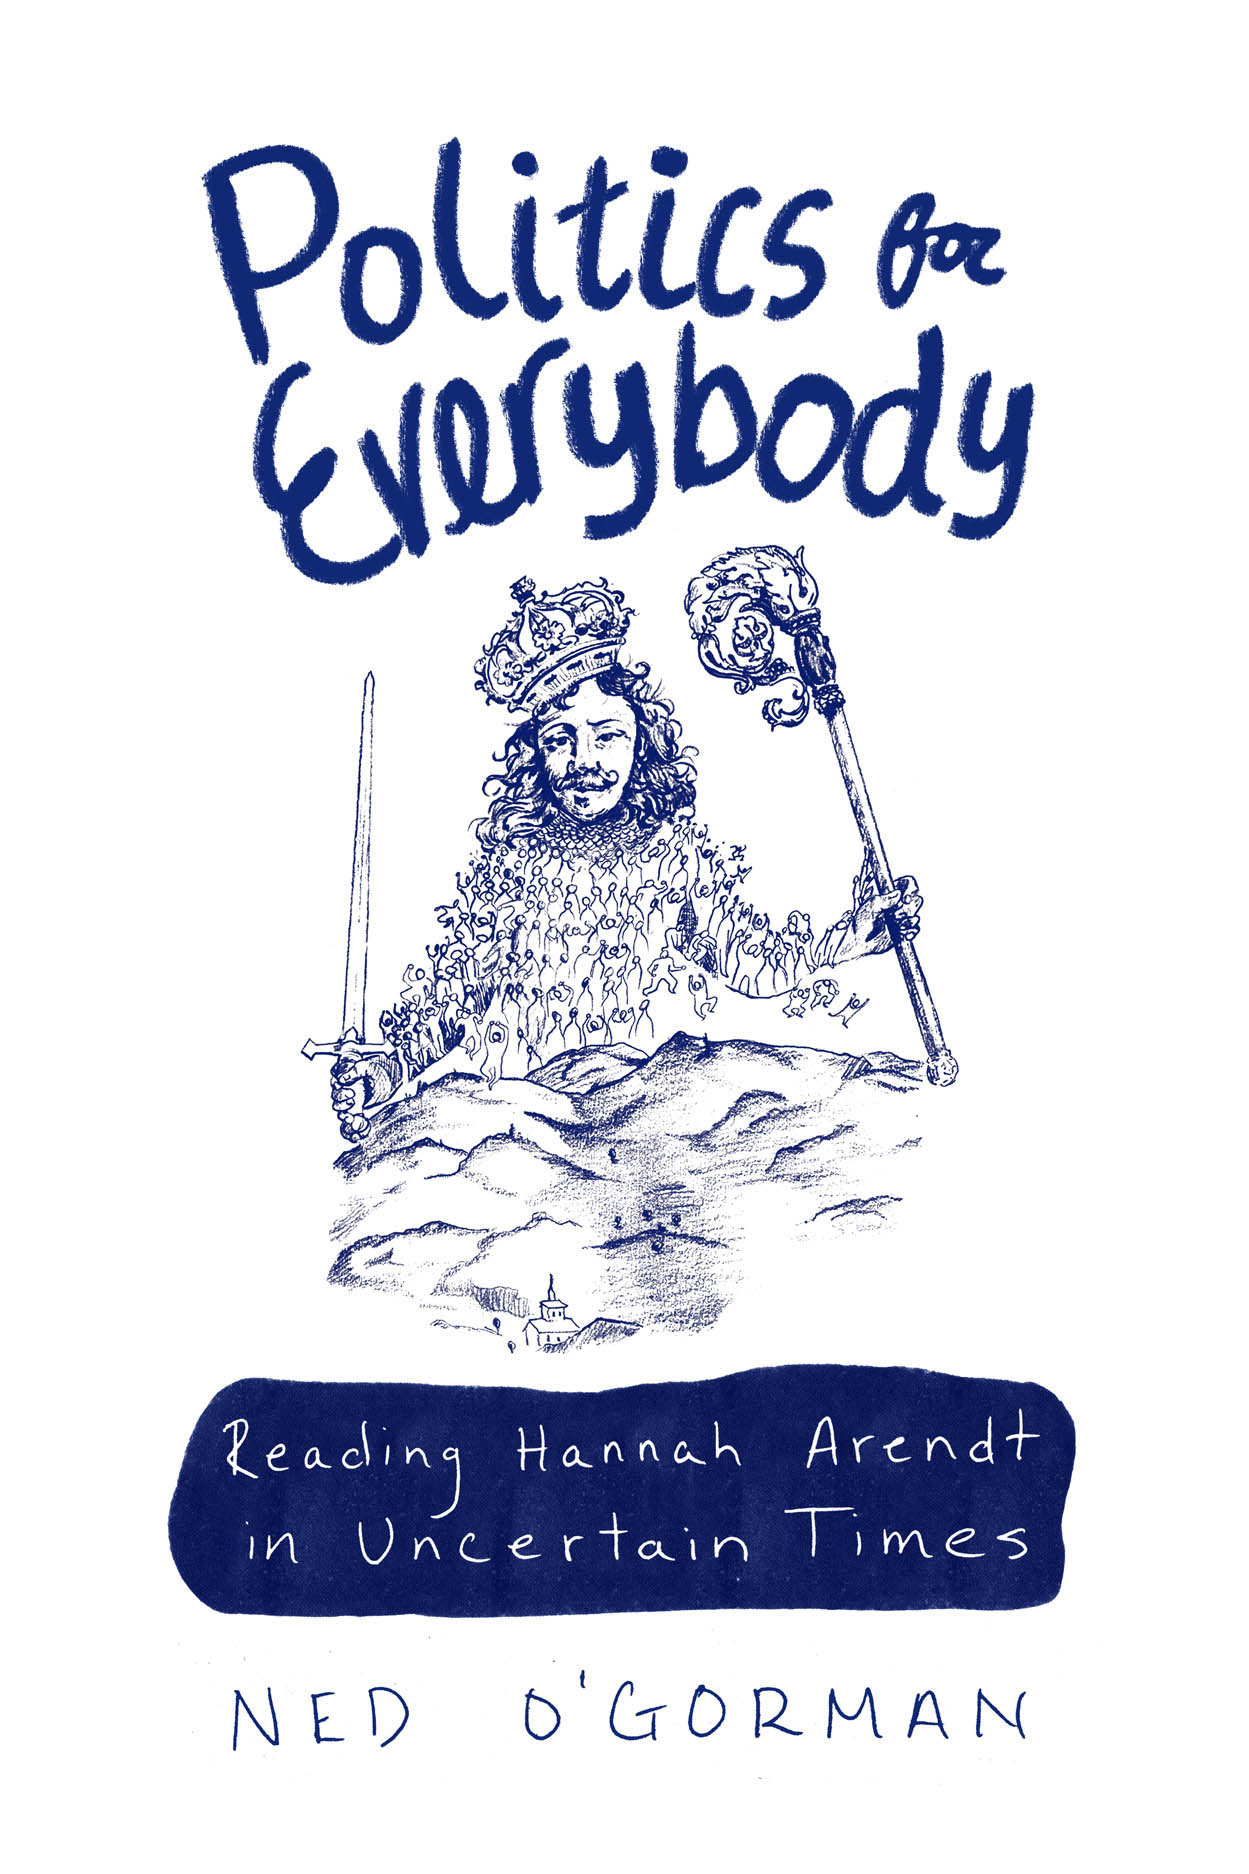 Politics for
Everybody
Reading Hannah Arendt
in Uncertain Times
NED O'GORMAN